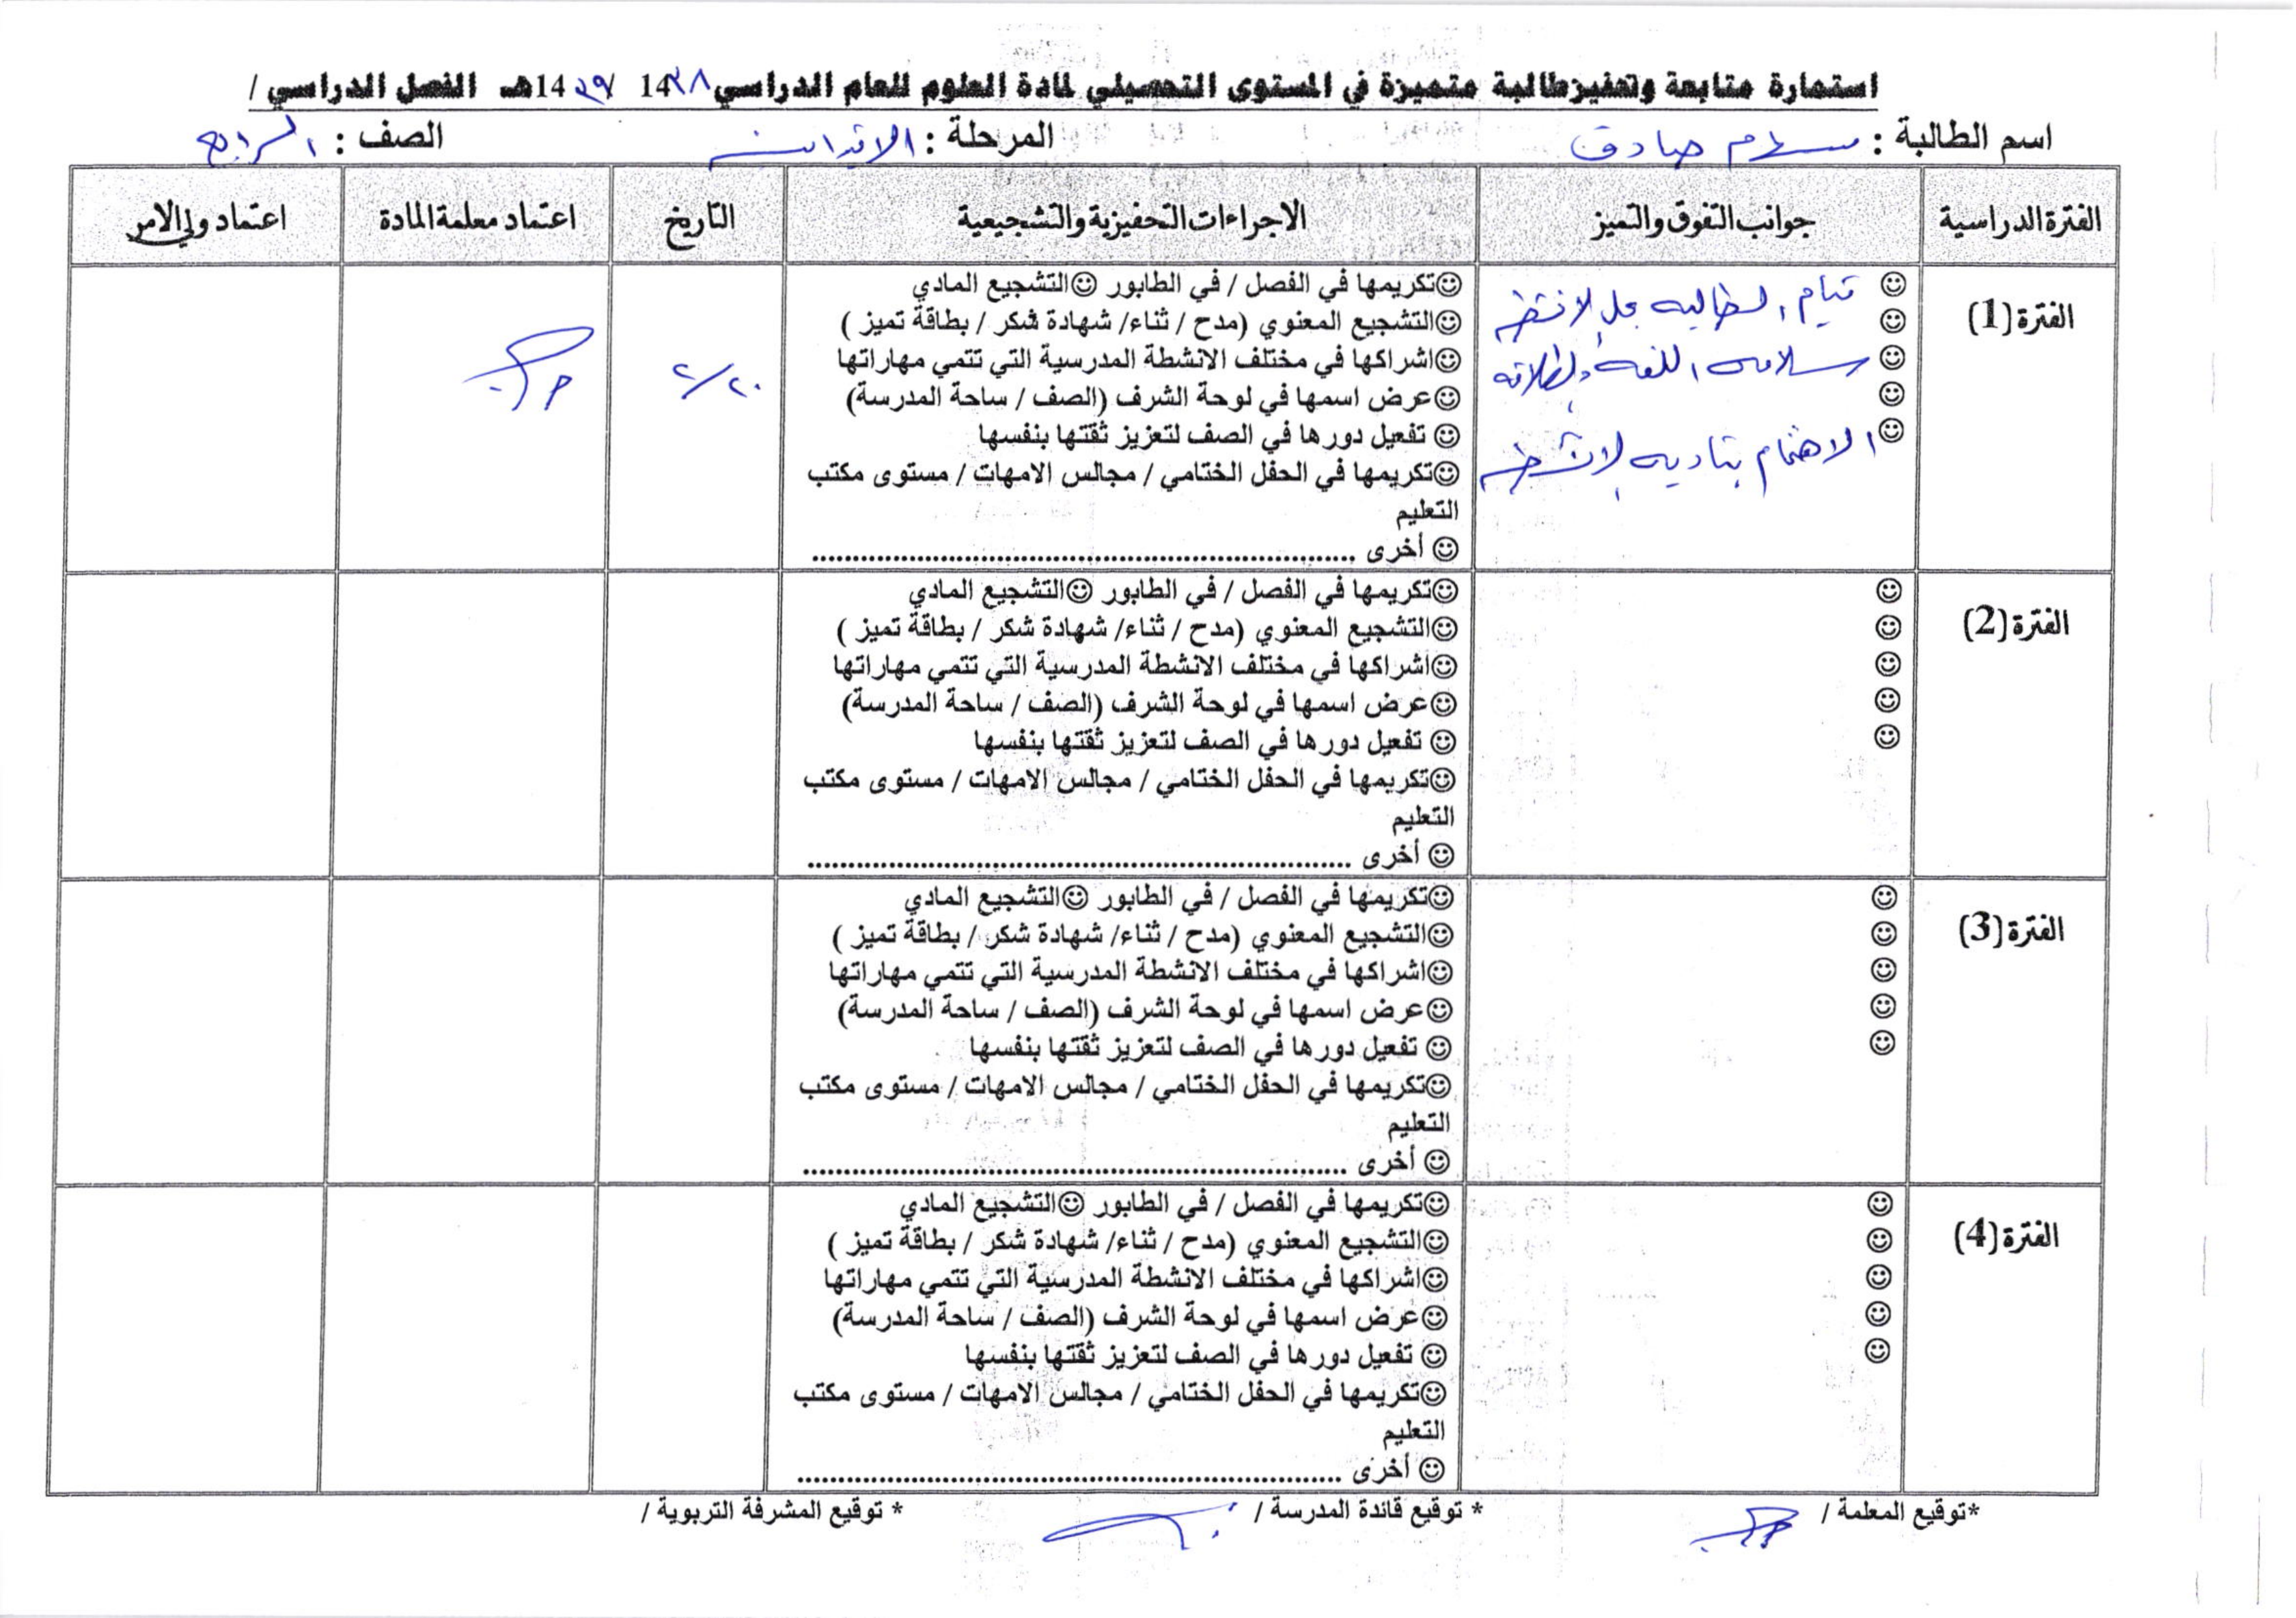 استمارة متابعة وتحفيز طالبة متميزة في المستوى التحصيلي لمادة العلوم للعام الدراسي 14٣٨ / 14٣٩هـ الفصل الدراسي /
اسم الطالبة : صادق المرحلة : الابتدائية الصف : الرابع
الفترة الدراسية جوانب التفوق والتميز الاجراءات التحفيزية والتشجيعية التاريخ اعتماد معلمة المادة اعتماد ولي الامر
الفترة (1)
☺ قيام الطالبه بحل الانشطه
☺
☺ سلامه اللغه والطلاقه
☺
☺ الاهتمام بتاديه الانشطه
☺تكريمها في الفصل / في الطابور ☺التشجيع المادي
☺التشجيع المعنوي (مدح / ثناء/ شهادة شكر / بطاقة تميز )
☺اشراكها في مختلف الانشطة المدرسية التي تتمي مهاراتها
☺عرض اسمها في لوحة الشرف (الصف / ساحة المدرسة)
☺ تفعيل دورها في الصف لتعزيز ثقتها بنفسها
☺تكريمها في الحفل الختامي / مجالس الامهات / مستوى مكتب
التعليم
☺ أخرى ....................................
٢/٢٠
الفترة (2)
☺
☺
☺
☺
☺
☺تكريمها في الفصل / في الطابور ☺التشجيع المادي
☺التشجيع المعنوي (مدح / ثناء/ شهادة شكر / بطاقة تميز )
☺اشراكها في مختلف الانشطة المدرسية التي تتمي مهاراتها
☺عرض اسمها في لوحة الشرف (الصف / ساحة المدرسة)
☺ تفعيل دورها في الصف لتعزيز ثقتها بنفسها
☺تكريمها في الحفل الختامي / مجالس الامهات / مستوى مكتب
التعليم
☺ أخرى ....................................
الفترة (3)
☺
☺
☺
☺
☺
☺تكريمها في الفصل / في الطابور ☺التشجيع المادي
☺التشجيع المعنوي (مدح / ثناء/ شهادة شكر / بطاقة تميز )
☺اشراكها في مختلف الانشطة المدرسية التي تتمي مهاراتها
☺عرض اسمها في لوحة الشرف (الصف / ساحة المدرسة)
☺ تفعيل دورها في الصف لتعزيز ثقتها بنفسها
☺تكريمها في الحفل الختامي / مجالس الامهات / مستوى مكتب
التعليم
☺ أخرى ....................................
الفترة (4)
☺
☺
☺
☺
☺
☺تكريمها في الفصل / في الطابور ☺التشجيع المادي
☺التشجيع المعنوي (مدح / ثناء/ شهادة شكر / بطاقة تميز )
☺اشراكها في مختلف الانشطة المدرسية التي تتمي مهاراتها
☺عرض اسمها في لوحة الشرف (الصف / ساحة المدرسة)
☺ تفعيل دورها في الصف لتعزيز ثقتها بنفسها
☺تكريمها في الحفل الختامي / مجالس الامهات / مستوى مكتب
التعليم
☺ أخرى ....................................
*توقيع المعلمة / * توقيع قائدة المدرسة / * توقيع المشرفة التربوية /